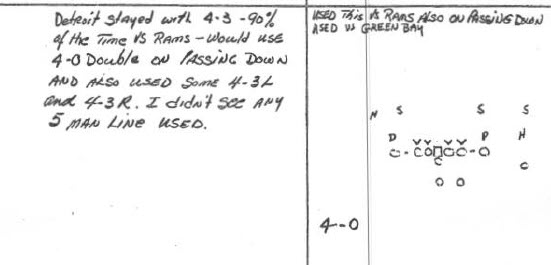 Detroit stayed with 4-3 -90%
of the Time VS Rams - Would use
4-0 Double on PASSING DOWN
AND Also used Some 4-3L
and 4-3R. I didn't see ANY
5 MAN LINE USED.
USED This VS RAMS Also ON PASSING DOWN
USED VS GREEN BAY
N S S S
D V V V V P H
O - C O O C - O
C C
O O
4-0